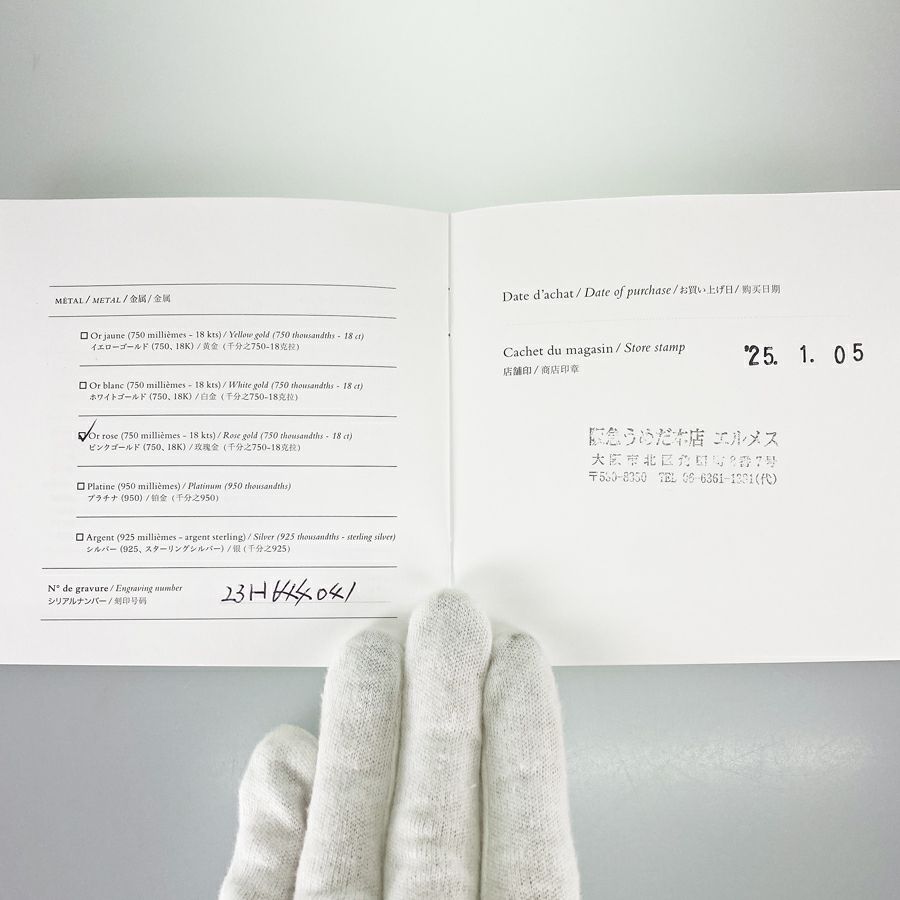 MÉTAL / METAL / 金属 / 金属
Or jaune (750 millièmes - 18 kts) / Yellow gold (750 thousandths - 18 ct)
イエローゴールド (750、18K) / 黄金 (千分之750-18克拉)
Or blanc (750 millièmes - 18 kts) / White gold (750 thousandths - 18 ct)
ホワイトゴールド (750、18K) / 白金 (千分之750-18克拉)
Or rose (750 millièmes - 18 kts) / Rose gold (750 thousandths - 18 ct)
ピンクゴールド (750、18K) / 玫瑰金 (千分之750-18克拉)
Platine (950 millièmes) / Platinum (950 thousandths)
プラチナ (950) / 铂金 (千分之950)
Argent (925 millièmes - argent sterling) / Silver (925 thousandths - sterling silver)
シルバー (925、スターリングシルバー) / 银 (千分之925)
N° de gravure / Engraving number
シリアルナンバー / 刻印号码
Date d'achat / Date of purchase / お買い上げ日 / 购买日期
Cachet du magasin / Store stamp
店舗印 / 商店印章
'25. 1. 05
阪急うめだ本店 エルメス
大阪市北区角田町8番7号
〒530-8350 TEL 06-6361-1381(代)